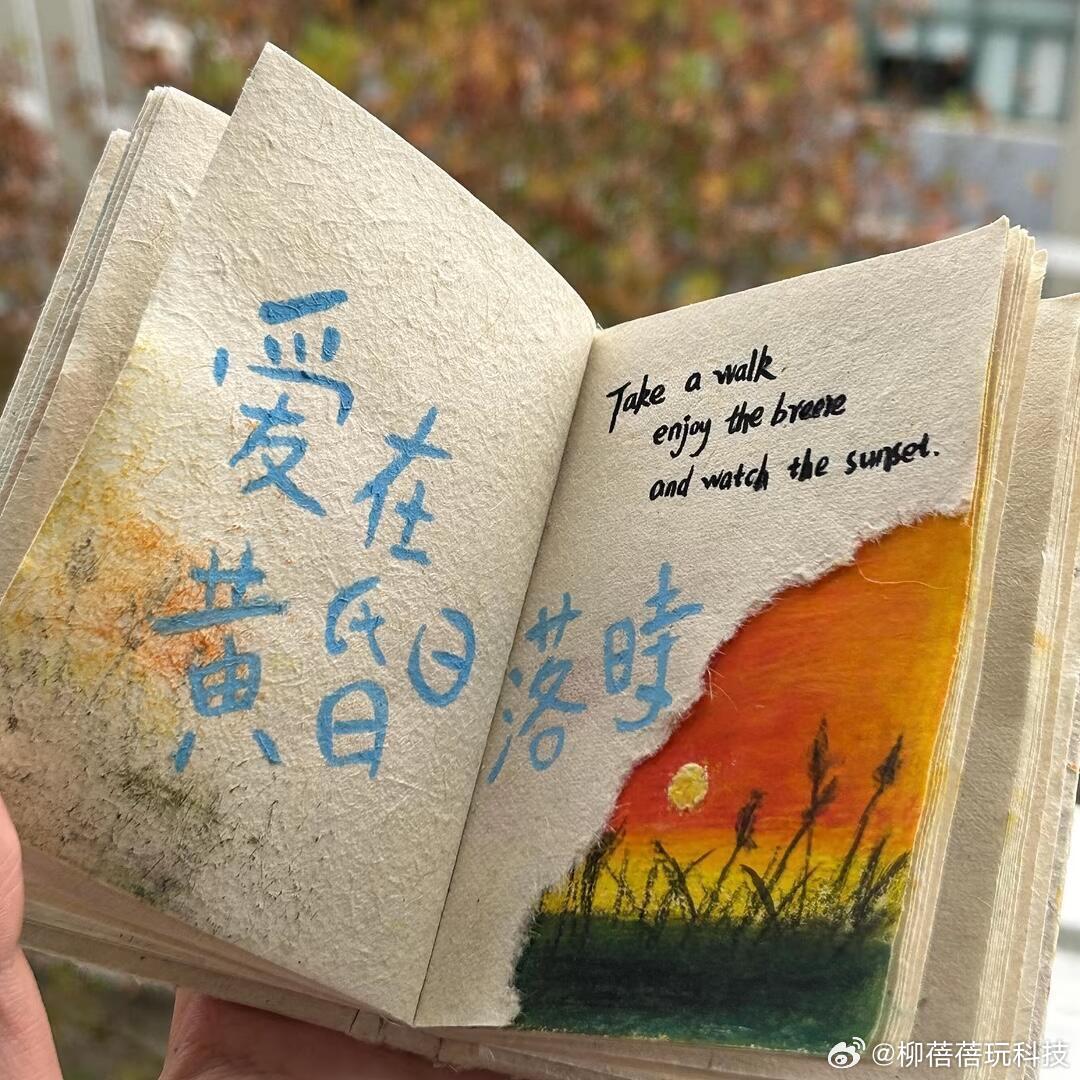 爱在
黄昏日落時
Take a walk,
enjoy the breeze
and watch the sunset.
@柳蓓蓓玩科技